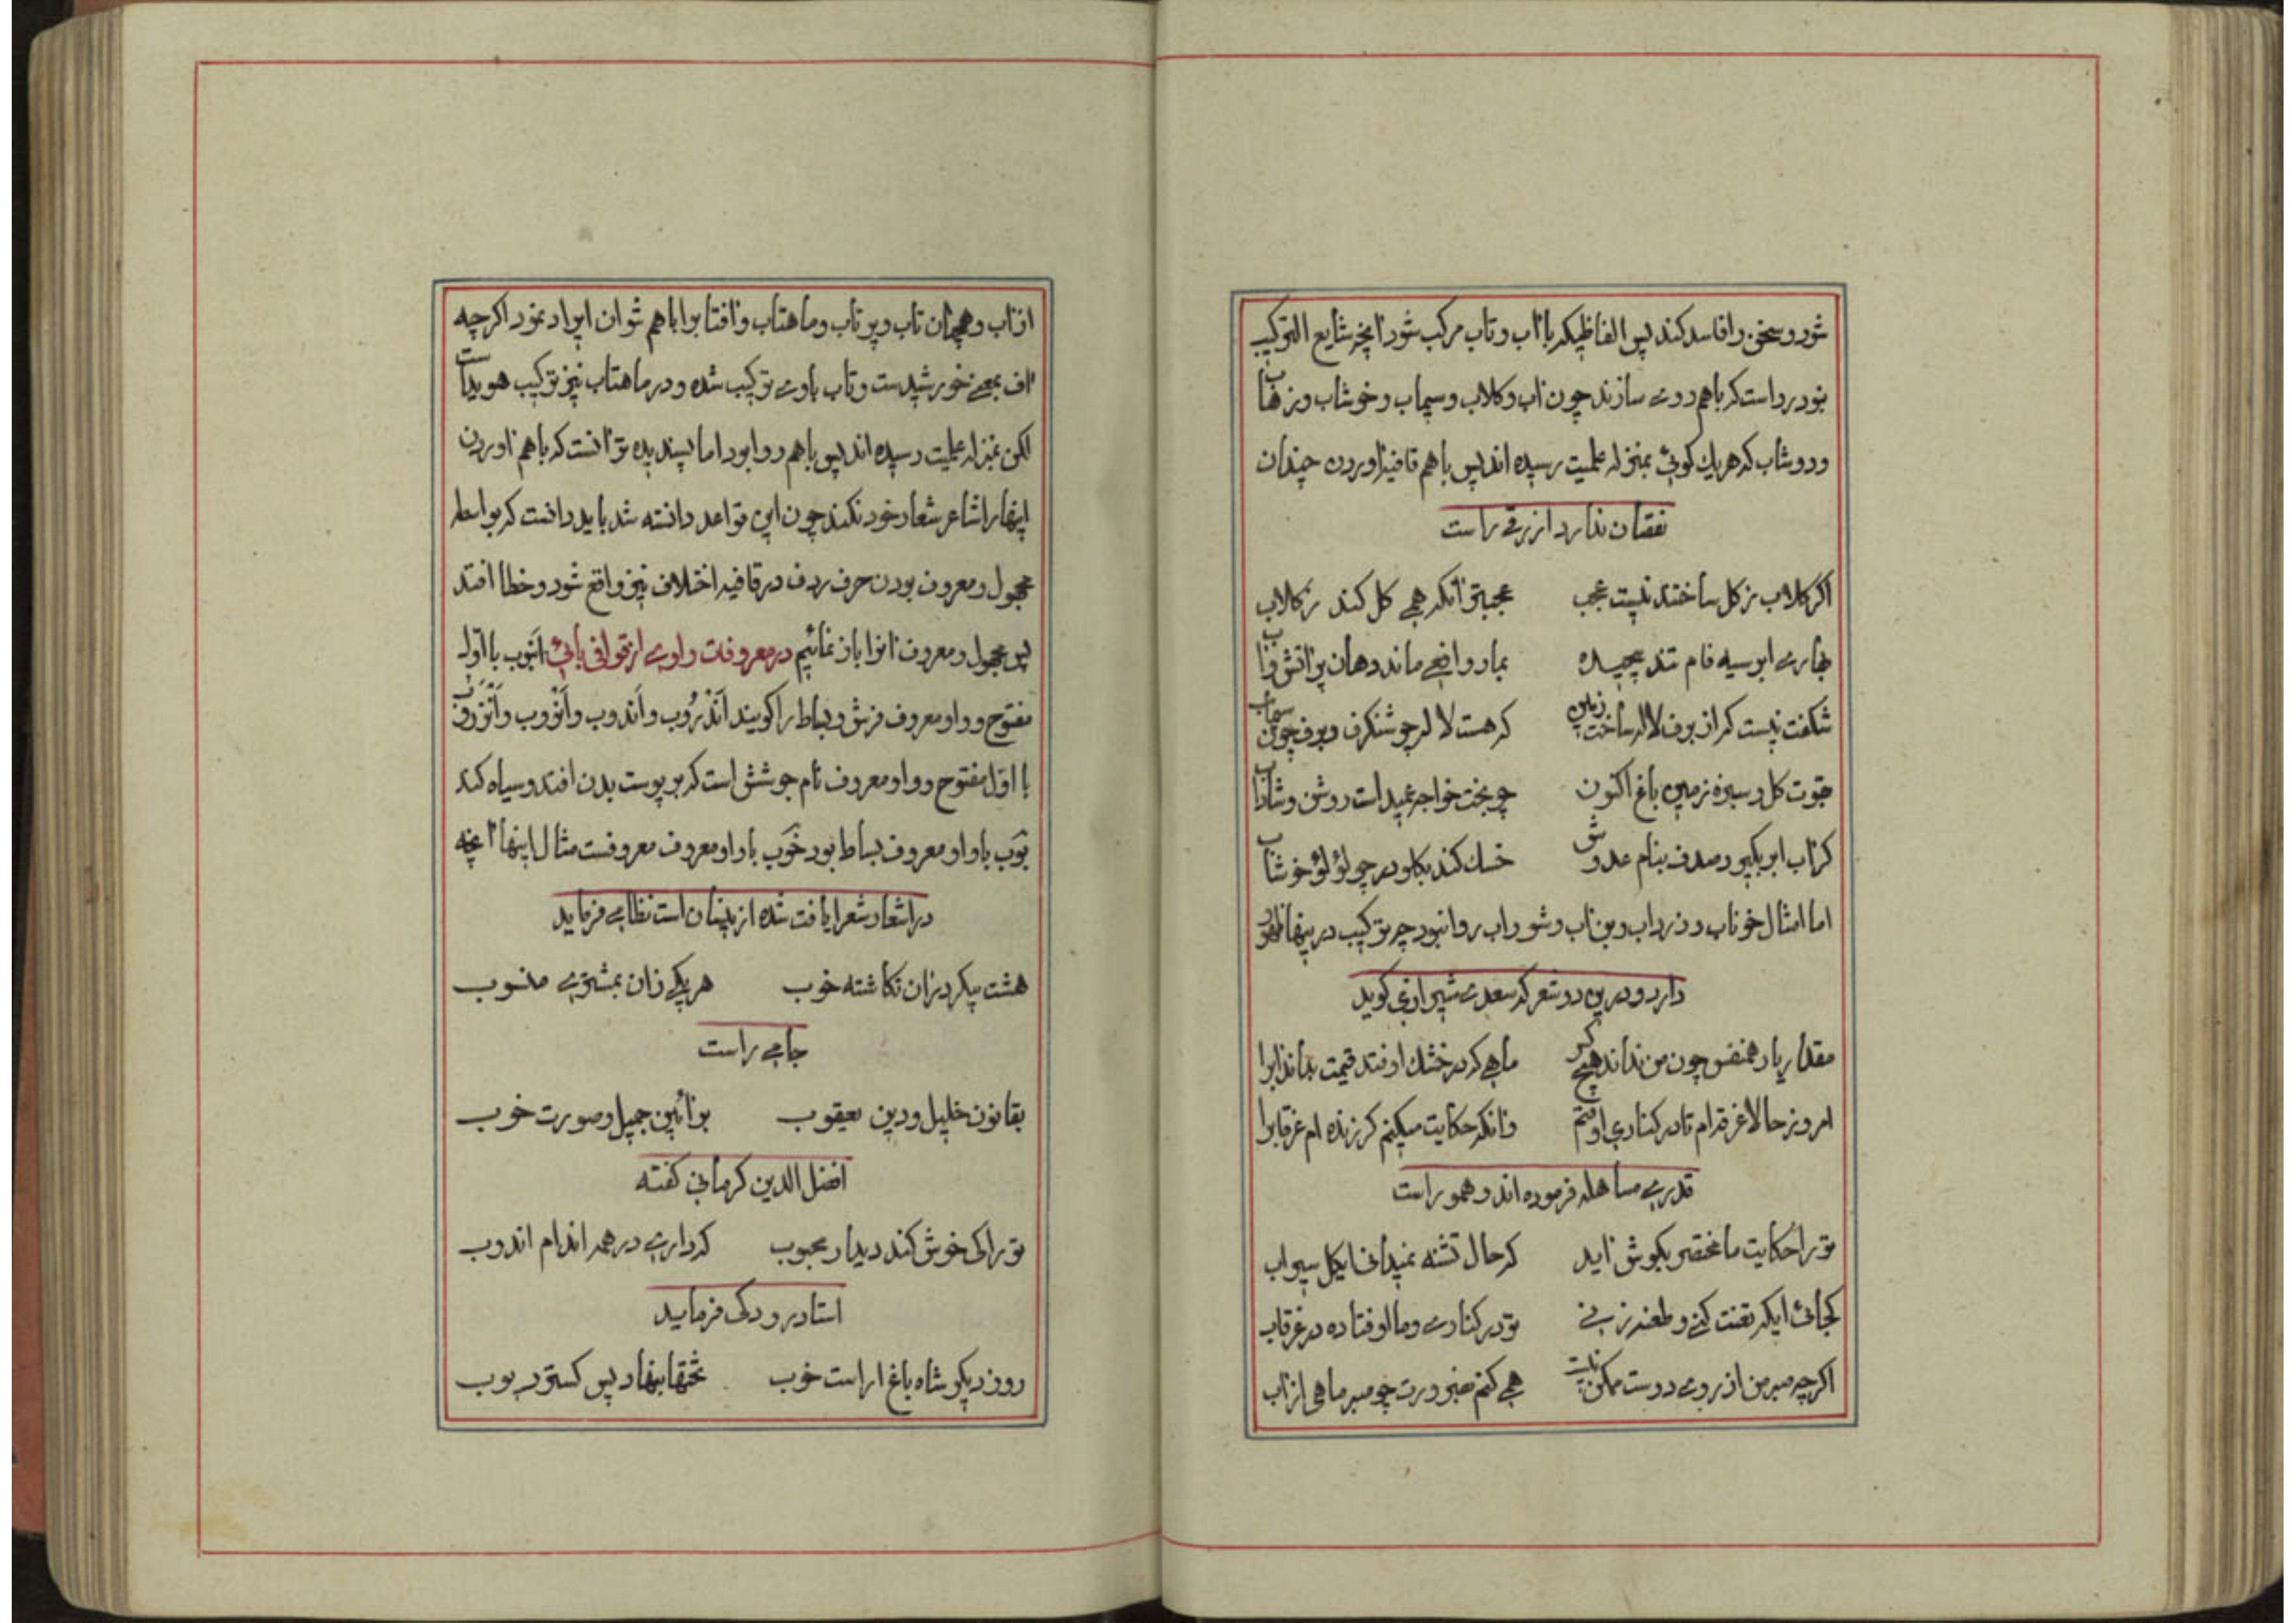 شود و سخن را فاسد کند پس الفاظیکه با آب و تاب مرکب شود آنچه شایع الترکیب
بود رواست که با هم روی سازند چون آب و کلاب و سیماب و خوشاب و زهاب
و دوشاب که هر یك کوئی بمنزله علمیت رسیده اند پس با هم قافیه آوردن چندان
نقصان ندارد ازرقی راست
اکر کلاب ز کل ساختند نیست عجب عجبتر آنکه همی کل کند ز کلاب
بخاری ابر سیه فام تند پیچیده بمار وافعی ماند دهان پر آتش و آب
شکفت نیست کر از برف لاله ساخت زمین که هست لاله چو شنکرف و برف چون سیماب
کل و سبزه زمین باغ اکنون چو بخت خواجه عمید است روشن و شاداب
کز آب ابر بکیرد صدف بنام عدوش خسك کند بکلو در چو لؤلؤ خوشاب
اما امثال خوناب و زرداب و بن آب و شوراب روا نبود چه ترکیب درینها ظهور
دارد و درین دو شعر که سعدی شیرازی کوید
مقدار یار همنفس چون من نداند هیچ کس ماهی که در خشك اوفتد قیمت بداند آبرا
امروز حالا غرقه ام تا در کناری اوفتم وانکه حکایت میکنم کر زنده ام غرقابرا
قدری مساهله فرموده اند و هم او راست
ترا حکایت ما مختصر بکوش آید که حال تشنه نمیدانی ایکل سیراب
کجائی ایکه تعنت کنی و طعنه زنی تو در کناری و ما اوفتاده در غرقاب
اکرچه صبر من از روی دوست ممکن نیست همی کنم بضرورت چو صبر ماهی از آب
ازآب و همچنان تاب و پرتاب و ماهتاب و آفتابرا با هم توان ایراد نمود اکرچه
آف بمعنی خورشیدست و تاب باوی ترکیب شده و در ماهتاب نیز ترکیب هویداست
لکن بمنزله علمیت رسیده اند پس با هم روا بود اما پسندیده تر آنست که با هم آوردن
اینها را شاعر شعار خود نکند چون این قواعد دانسته شد باید دانست که بواسطه
مجهول و معروف بودن حرف ردف در قافیه اختلاف نیز واقع شود و خطا افتد
پس مجهول و معروف آنرا باز نمائیم در معروفات واوی از قوافی بائی انبوب با اول
مفتوح و واو معروف فرش و بساط را کویند اندروب و اندوب و انزوب و
با اول مفتوح و واو معروف نام جوششی است که بر پوست بدن افتد و سیاه کند
بوب با واو معروف بساط بود خوب با واو معروف معروفست مثال اینها آنچه
در اشعار شعرا یافت شده از بینسان است نظامی فرماید
هشت پیکر در آن نکاشته خوب هر یکی زان بمشتری منسوب
جامی راست
بقانون خلیل و دین یعقوب بر آئین جمیل و صورت خوب
افضل الدین کرمانی کفته
ترا کی خوش کند دیدار محبوب که داری در همه اندام اندوب
استاد رودکی فرماید
روز دیکر شاه باغ آراست خوب تختها بنهاد پس کسترد بوب